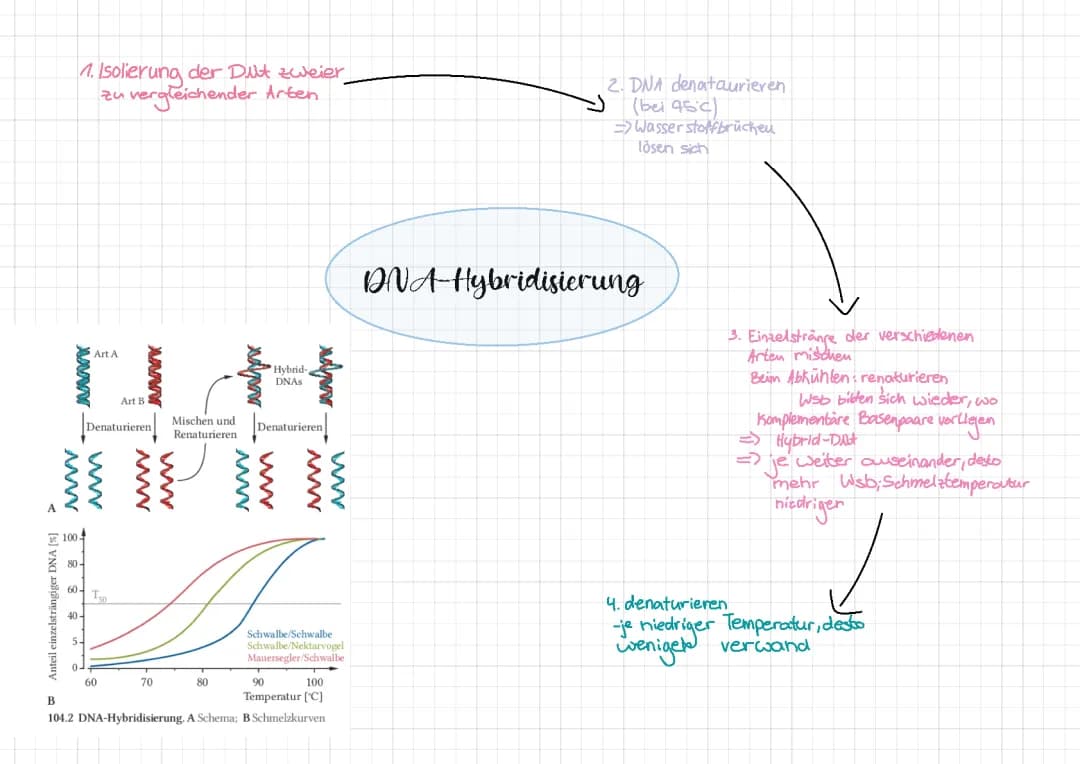 1. Isolierung der DNA zweier
zu vergleichender Arten
2. DNA denataurieren
(bei 95°C)
=> Wasserstoffbrücken
lösen sich
DNA-Hybridisierung
3. Einzelstränge der verschiedenen
Arten mischen
Beim Abkühlen: renaturieren
Wsb bilden sich wieder, wo
komplementäre Basenpaare vorliegen
=> Hybrid-DNA
=> je weiter auseinander, desto
mehr Wsb; Schmelztemperatur
niedriger
4. denaturieren
-je niedriger Temperatur, desto
weniger verwand
Art A
Art B
Hybrid-
DNAs
Denaturieren
Mischen und
Renaturieren
Denaturieren
A
Anteil einzelsträngiger DNA [%]
100
80
60
T50
40
5
0
60 70 80 90 100
Schwalbe/Schwalbe
Schwalbe/Nektarvogel
Mauersegler/Schwalbe
Temperatur [°C]
B
104.2 DNA-Hybridisierung. A Schema; B Schmelzkurven